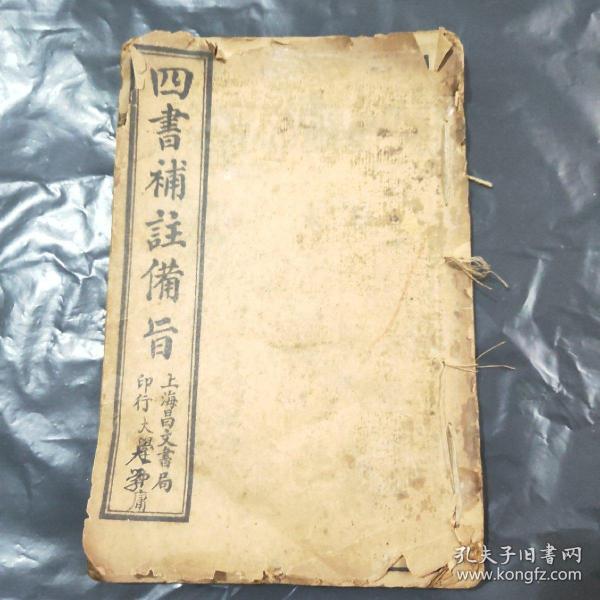 四書補註備旨
上海昌文書局
印行大學中庸
孔夫子旧书网
www.kongfz.com